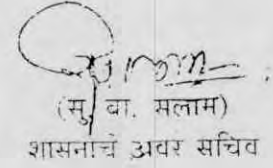 (सु. वा. सलाम)
शासनाचे अवर सचिव